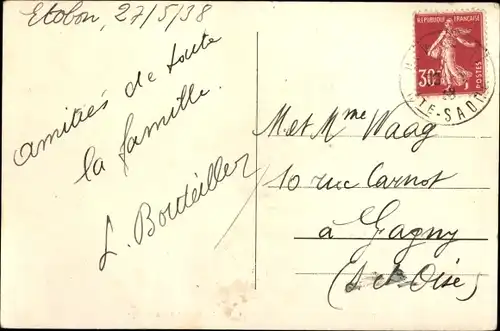 Etobon, 27/5/38
amitiés de toute
la famille.
L. Bouteiller
REPUBLIQUE FRANÇAISE
30
POSTES
TE-SAON
M et Mme Waag
10 rue Carnot
à Gagny
(S et Oise)